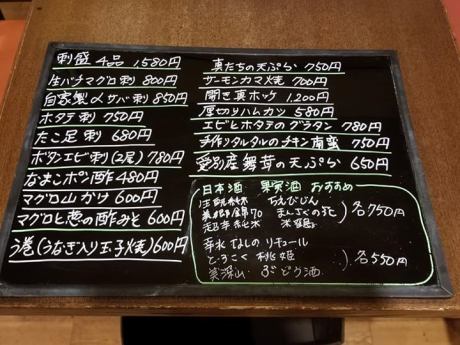 刺盛 4品 1,580円
生バチマグロ刺 800円
自家製〆サバ刺 850円
ホタテ刺 750円
たこ足刺 680円
ボタンエビ刺(2尾) 780円
なまこポン酢 480円
マグロ山かけ 600円
マグロと葱の酢みそ 600円
う巻(うなぎ入り玉子焼) 600円
真たちの天ぷら 750円
サーモンカマ焼 700円
開き真ホッケ 1,200円
厚切りハムカツ 580円
エビとホタテのグラタン 780円
手作りタルタルのチキン南蛮 750円
愛別産舞茸の天ぷら 650円
日本酒 果実酒 おすすめ
ちえびじん
美郷錦70 まんさくの花
各750円
幸水なしの リキュール
とろこく 桃姫
ぶどう酒
各550円